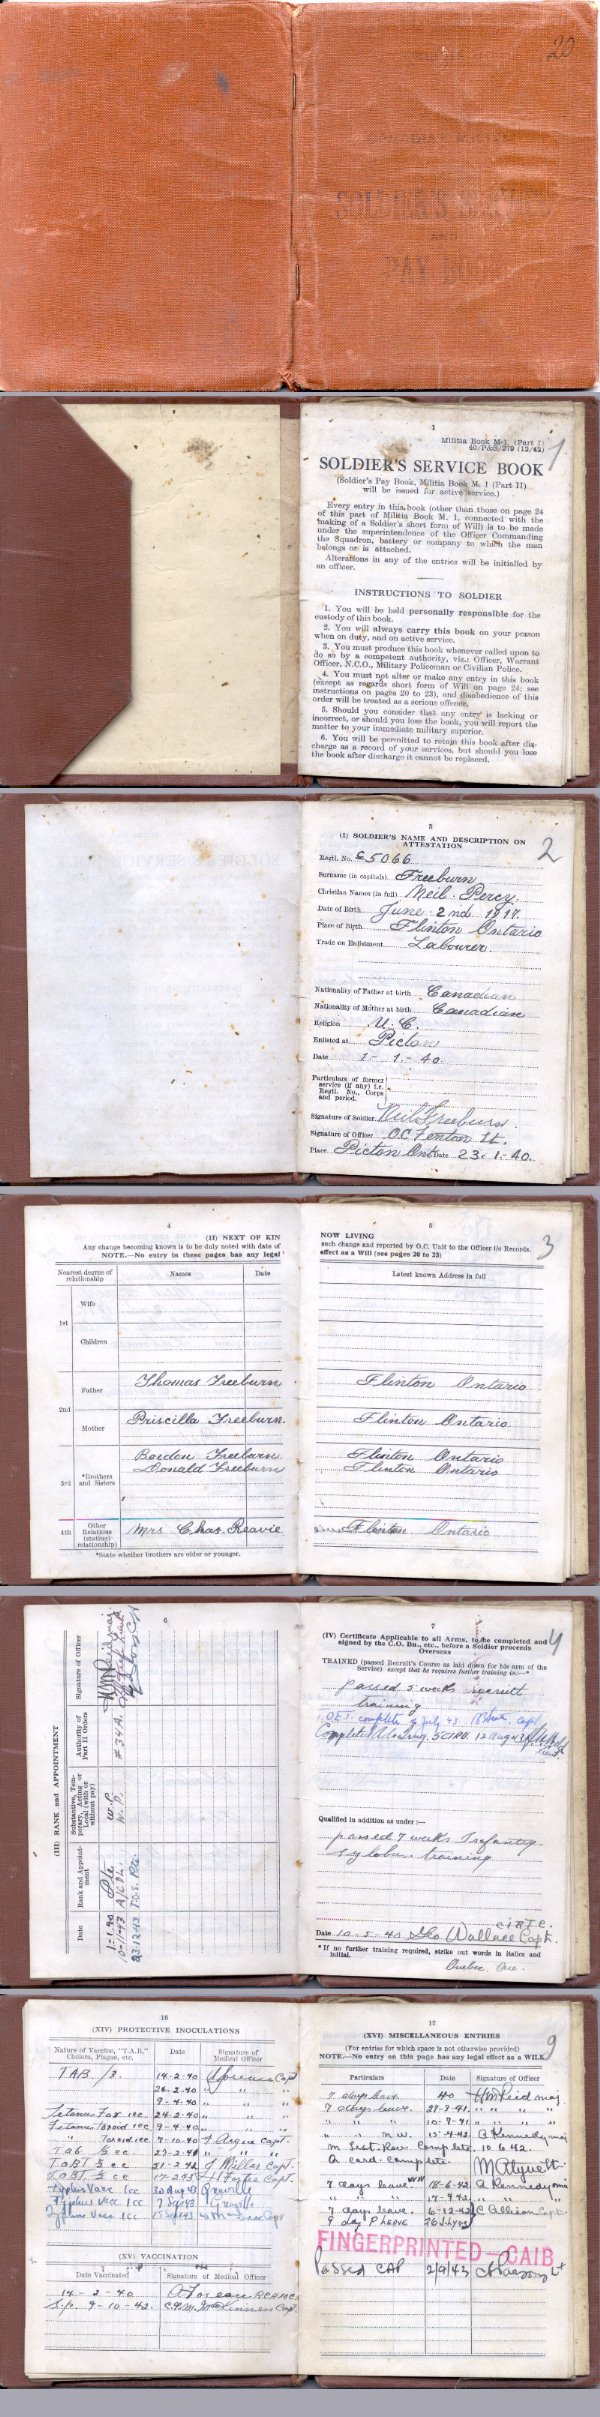 20
SOLDIER'S SERVICE
AND
PAY BOOK
1
Militia Book M-1. (Part I)
40/P&S/279 (12/42)
SOLDIER'S SERVICE BOOK
(Soldier's Pay Book, Militia Book M. 1 (Part II)
will be issued for active service.)
Every entry in this book (other than those on page 24
of this part of Militia Book M. 1, connected with the
making of a Soldier's short form of Will) is to be made
under the superintendence of the Officer Commanding
the Squadron, battery or company to which the man
belongs or is attached.
Alterations in any of the entries will be initialled by
an officer.
INSTRUCTIONS TO SOLDIER
1. You will be held personally responsible for the
custody of this book.
2. You will always carry this book on your person
when on duty, and on active service.
3. You must produce this book whenever called upon to
do so by a competent authority, viz.: Officer, Warrant
Officer, N.C.O., Military Policeman or Civilian Police.
4. You must not alter or make any entry in this book
(except as regards short form of Will on page 24; see
instructions on pages 20 to 23), and disobedience of this
order will be treated as a serious offence.
5. Should you consider that any entry is lacking or
incorrect, or should you lose the book, you will report the
matter to your immediate military superior.
6. You will be permitted to retain this book after dis-
charge as a record of your services, but should you lose
the book after discharge it cannot be replaced.
3
2
(I) SOLDIER'S NAME AND DESCRIPTION ON
ATTESTATION
Regtl. No. C5066
Surname (in capitals) Freeburn
Christian Names (in full) Neil Percy.
Date of Birth June 2nd 1917
Place of Birth Flinton Ontario
Trade on Enlistment Labourer.
Nationality of Father at birth Canadian
Nationality of Mother at birth Canadian
Religion U.C.
Enlisted at Picton
Date 1-1-40.
Particulars of former
service (if any) i.e.
Regtl. No., Corps
and period.
Signature of Soldier Neil Freeburn
Signature of Officer O.C. Fenton Lt.
Place Picton Ont Date 23-1-40.
4
(II) NEXT OF KIN
Any change becoming known is to be duly noted with date of
NOTE.—No entry in these pages has any legal
Nearest degree of
relationship
Names
Date
1st
Wife
Children
2nd
Father Thomas Freeburn
Mother Priscilla Freeburn
3rd
*Brothers
and Sisters
Bordon Freeburn
Donald Freeburn
4th
Other
Relations
(stating
relationship)
Mrs Chas. Reavie
*State whether brothers are older or younger.
5
3
NOW LIVING
such change and reported by O.C. Unit to the Officer i/c Records.
effect as a Will (see pages 20 to 23)
Latest known Address in full
Flinton Ontario
Flinton Ontario
Flinton Ontario
Flinton Ontario
Flinton Ontario
6
(III) RANK and APPOINTMENT
Date
Rand and Appoint-
ment
Substantive, Tem-
porary, Acting or
Local (with or
without pay)
Authority of
Part II Orders
Signature of Officer
1-1-40 Pte W.P.
10-11-43 A/CPL. W.P. #34A.
23-12-43
7
4
(IV) Certificate Applicable to all Arms, to be completed and
signed by the C.O. Bn., etc., before a Soldier proceeds
Overseas
TRAINED (passed Recruit's Course as laid down for his arm of the
Service) except that he requires further training in—*
passed 5 weeks recruit
training
complete July 43
Completed 12 Aug 43
Qualified in addition as under:—
passed 7 weeks Infantry
training
C.I.A.T.C.
Date 10-5-40 Geo Wallace Capt.
* If no further training required, strike out words in italics and
initial.
Quebec. Que.
16
(XIV) PROTECTIVE INOCULATIONS
Nature of Vaccine, "T.A.B,"
Cholera, Plague, etc.
Date
Signature of
Medical Officer
TAB /3. 14-2-40 Capt
24-2-40 " "
9-4-40 " "
Tetanus Tox 1cc 24-2-40 " "
Tetanus Toxoid 1cc 9-4-40 " "
" Toxoid 1cc 7-10-40 Capt.
TAB cc 27-2-41 "
TABT cc 21-2-42 J Millar Capt.
TABT cc Capt.
Typhus Vacc 1cc 30 Aug 43
Typhus Vacc 1cc 7 Sep 43
Typhus Vacc 1cc 15 Sep 43
(XV) VACCINATION
Date Vaccinated
Signature of Medical Officer
14-2-40. RCAMC
9-10-42. Capt.
17
9
(XVI) MISCELLANEOUS ENTRIES
(For entries for which space is not otherwise provided)
NOTE.—No entry on this page has any legal effect as a WILL
Particulars
Date
Signature of Officer
7 days leave 40 HM Reid maj
7 days leave. 27-3-41. " " "
" " " 10-9-41 " " "
" " " n.w. 15-4-42. A Kennedy maj
complete. 10.6.42.
card complete.
7 days leave 18-6-42 A Kennedy
" " " 17-9-42
7 days leave. 6-12-42 C Allison Capt.
9 day P Leave
FINGERPRINTED—CAIB
Passed CAP 2/9/43